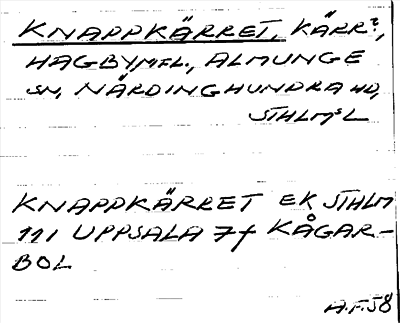 KNAPPKÄRRET, KÄRR?,
HAGBY MFL., ALMUNGE
SN, NÄRDINGHUNDRA HD,
STHLMS L
KNAPPKÄRRET EK STHLM
111 UPPSALA 7f KÅGAR-
BOL
A.F.58